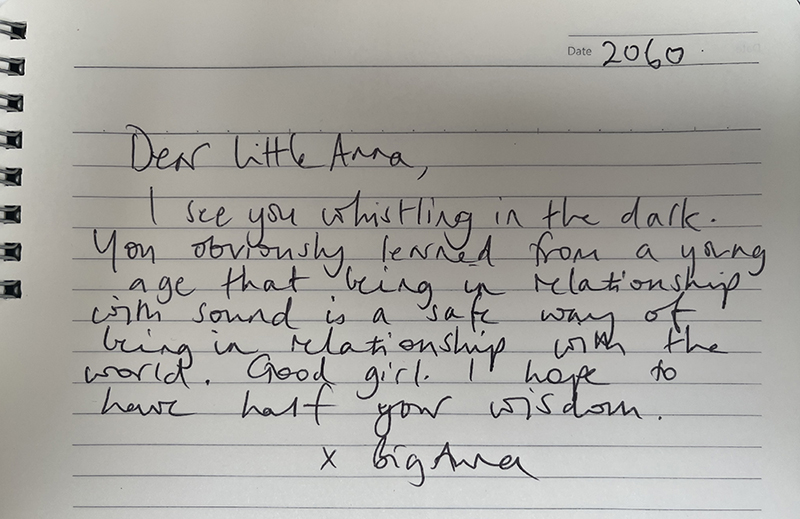 Date 2060.
Dear little Anna,
I see you whistling in the dark.
You obviously learned from a young
age that being in relationship
with sound is a safe way of
being in relationship with the
world. Good girl. I hope to
have half your wisdom.
x Big Anna